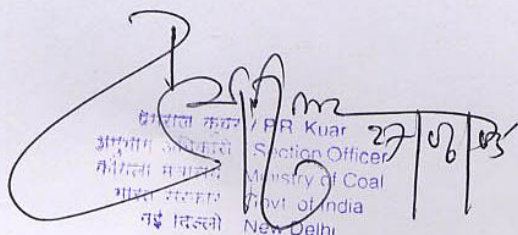 प्रेमराज कुवर / P.R. Kuar
अनुभाग अधिकारी Section Officer
कोयला मंत्रालय Ministry of Coal
भारत सरकार Govt. of India
नई दिल्ली New Delhi